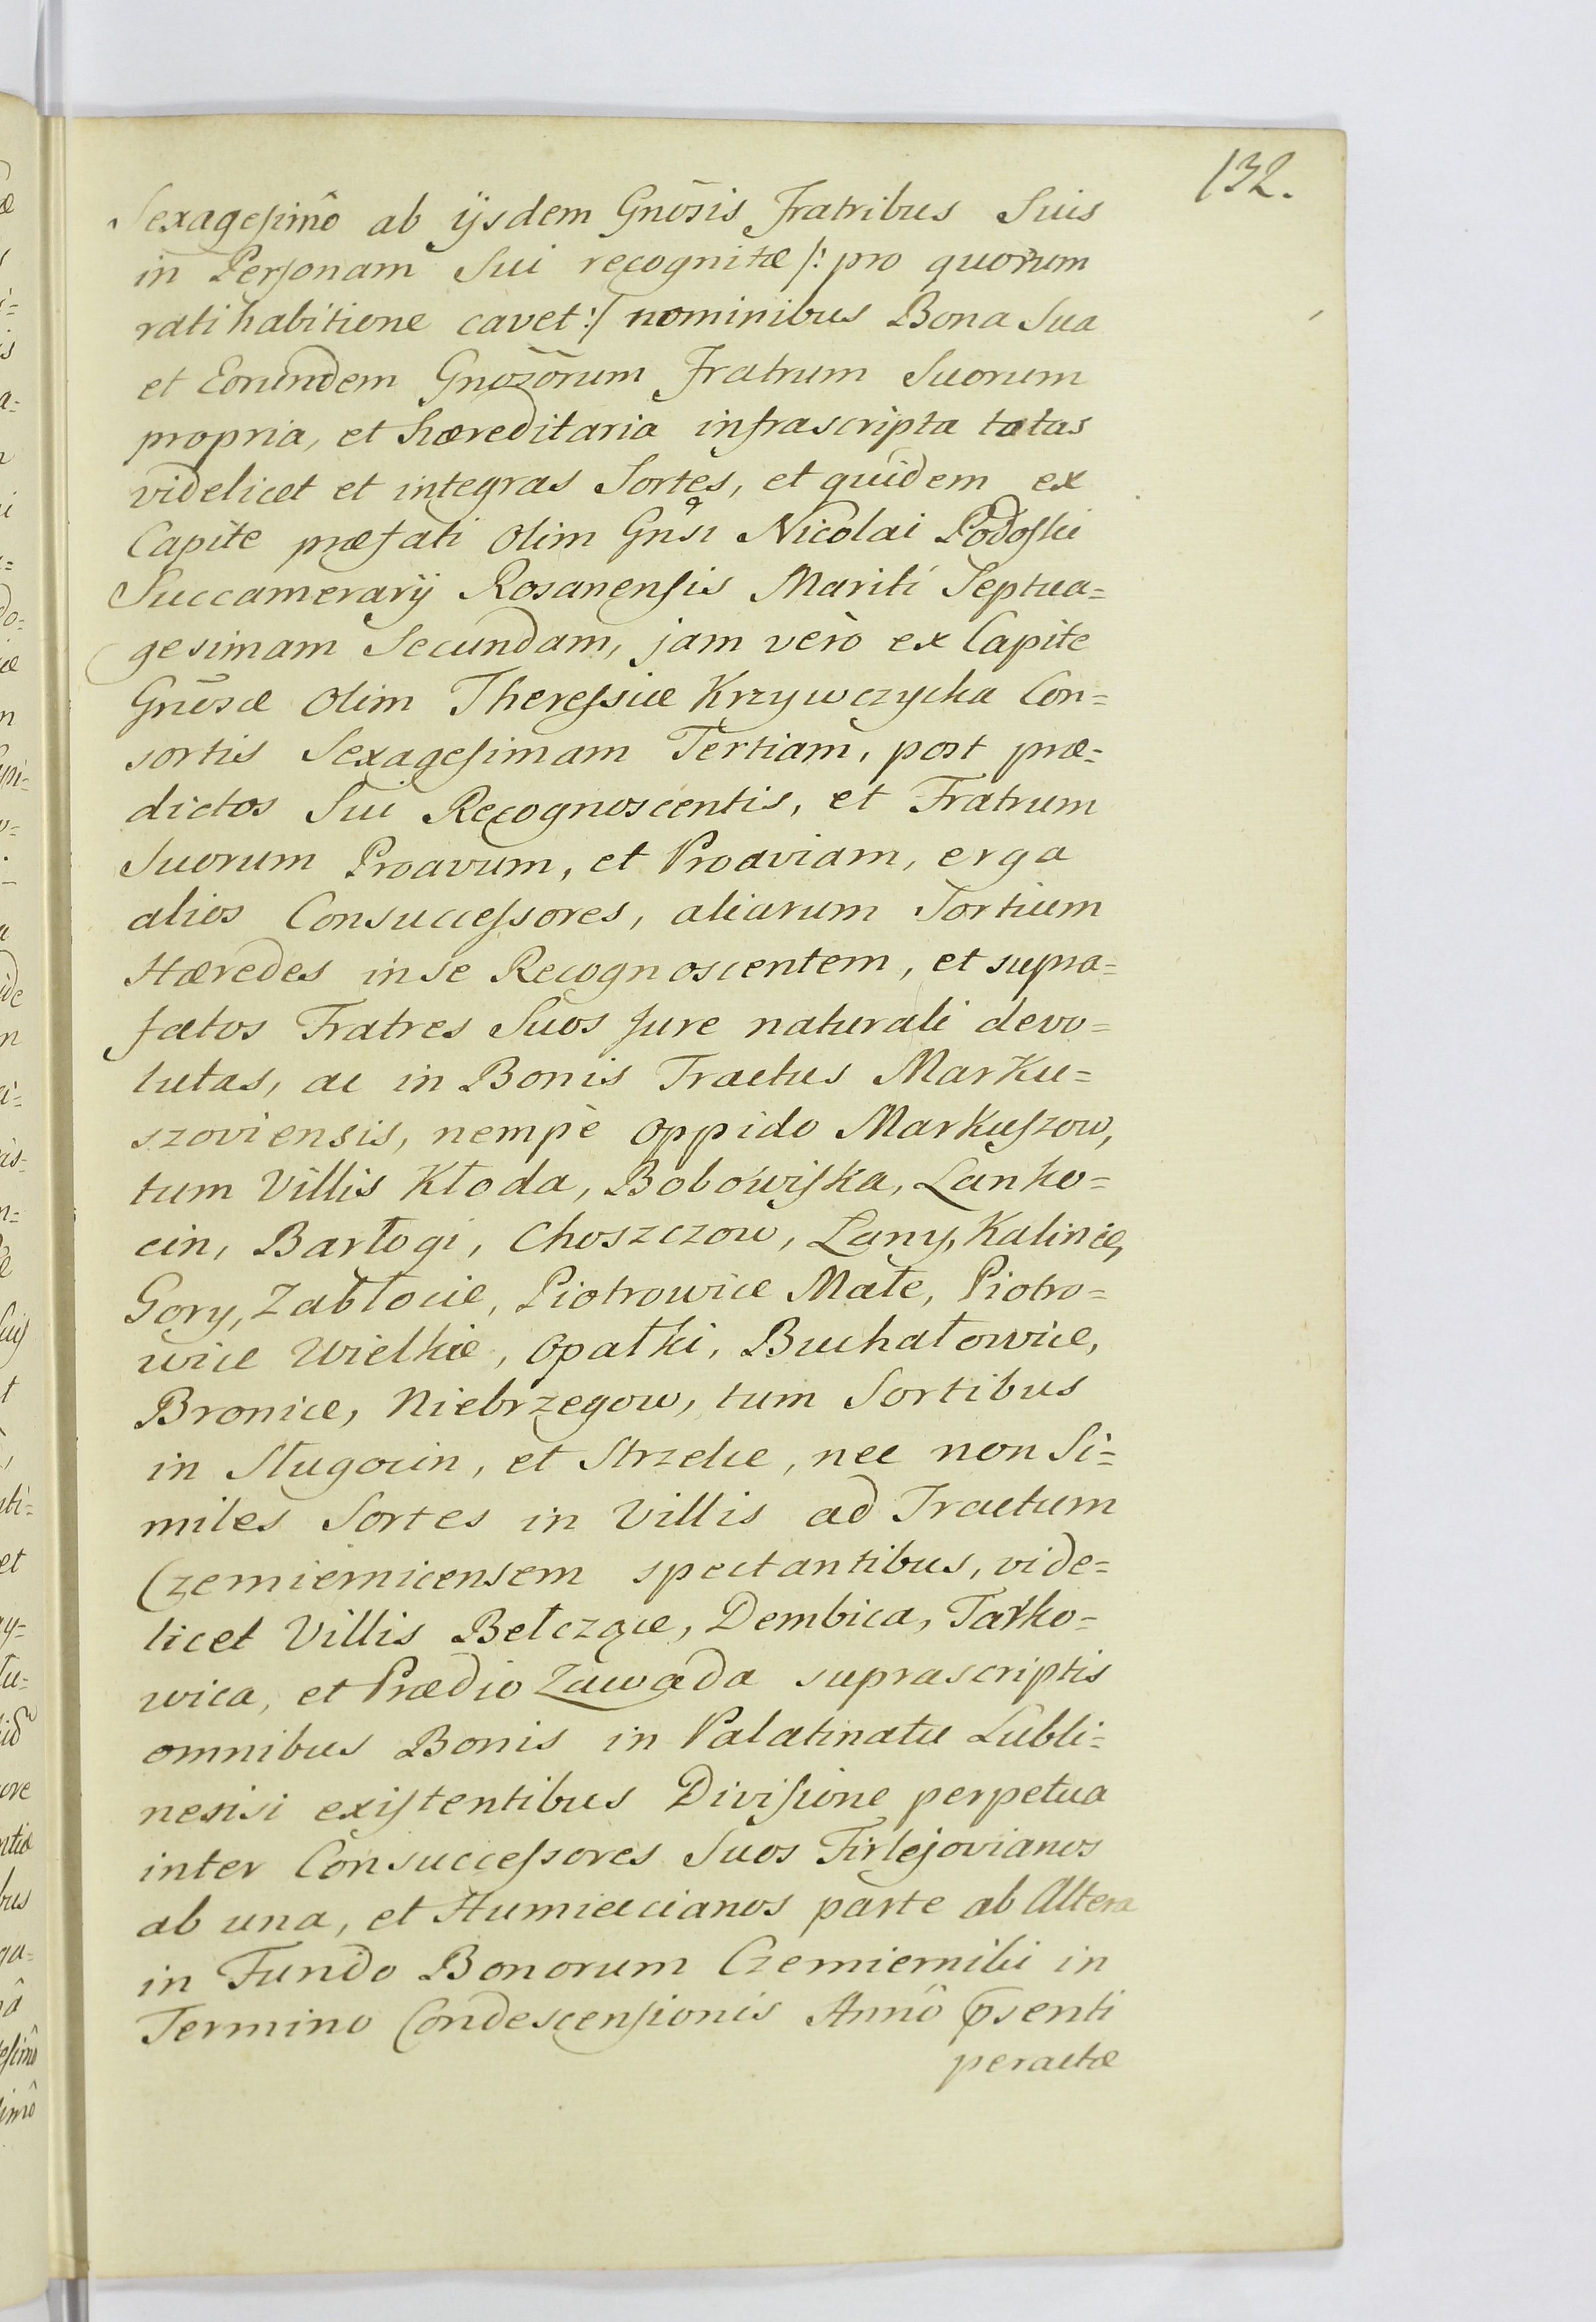 132.
Sexagesimô ab ijsdem Gnõsis Fratribus Suis
in Personam Sui recognitæ /: pro quorum
ratihabitione cavet :/ nominibus Bona Sua
et Eorundem Gnozõrum Fratrum Suorum
propria, et hæreditaria infrascripta totas
videlicet et integras Sortes, et quidem ex
Capite præfati olim Gnsi Nicolai Podoski
Succamerarij Rosanensis Mariti Septua=
gesimam Secundam, jam verò ex Capite
Gnõsæ olim Theressiæ Krzywczycka Con=
sortis Sexagesimam Tertiam, post præ=
dictos Sui Recognoscentis, et Fratrum
Suorum Proavum, et Proaviam, erga
alios Consuccessores, aliarum Sortium
Hæredes in se Recognoscentem, et supra=
fatos Fratres Suos Jure naturali devo=
lutas, ac in Bonis Tractus Marku=
szoviensis, nempè Oppido Markuszow,
tum Villis Kłoda, Bobowiska, Lanko=
cin, Barłogi, Choszczow, Łany, Kalinie,
Gory, Zabłocie, Piotrowice Małe, Piotro=
wice Wielkie, Opatki, Buchałowice,
Bronice, Niebrzegow, tum Sortibus
in Sługocin, et Strzelce, nec non Si=
miles Sortes in Villis ad Tractum
Czemiernicensem spectantibus, vide=
licet Villis Bełcząc, Dembica, Tarko=
wica, et Prædio Zawada suprascriptis
omnibus Bonis in Palatinatu Lubli=
nensi existentibus Divisione perpetua
inter Consuccessores Suos Firlejovianos
ab una, et Humiecianos parte ab Altera
in Fundo Bonorum Czemierniki in
Termino Condescensionis Annô p̃senti
peractæ